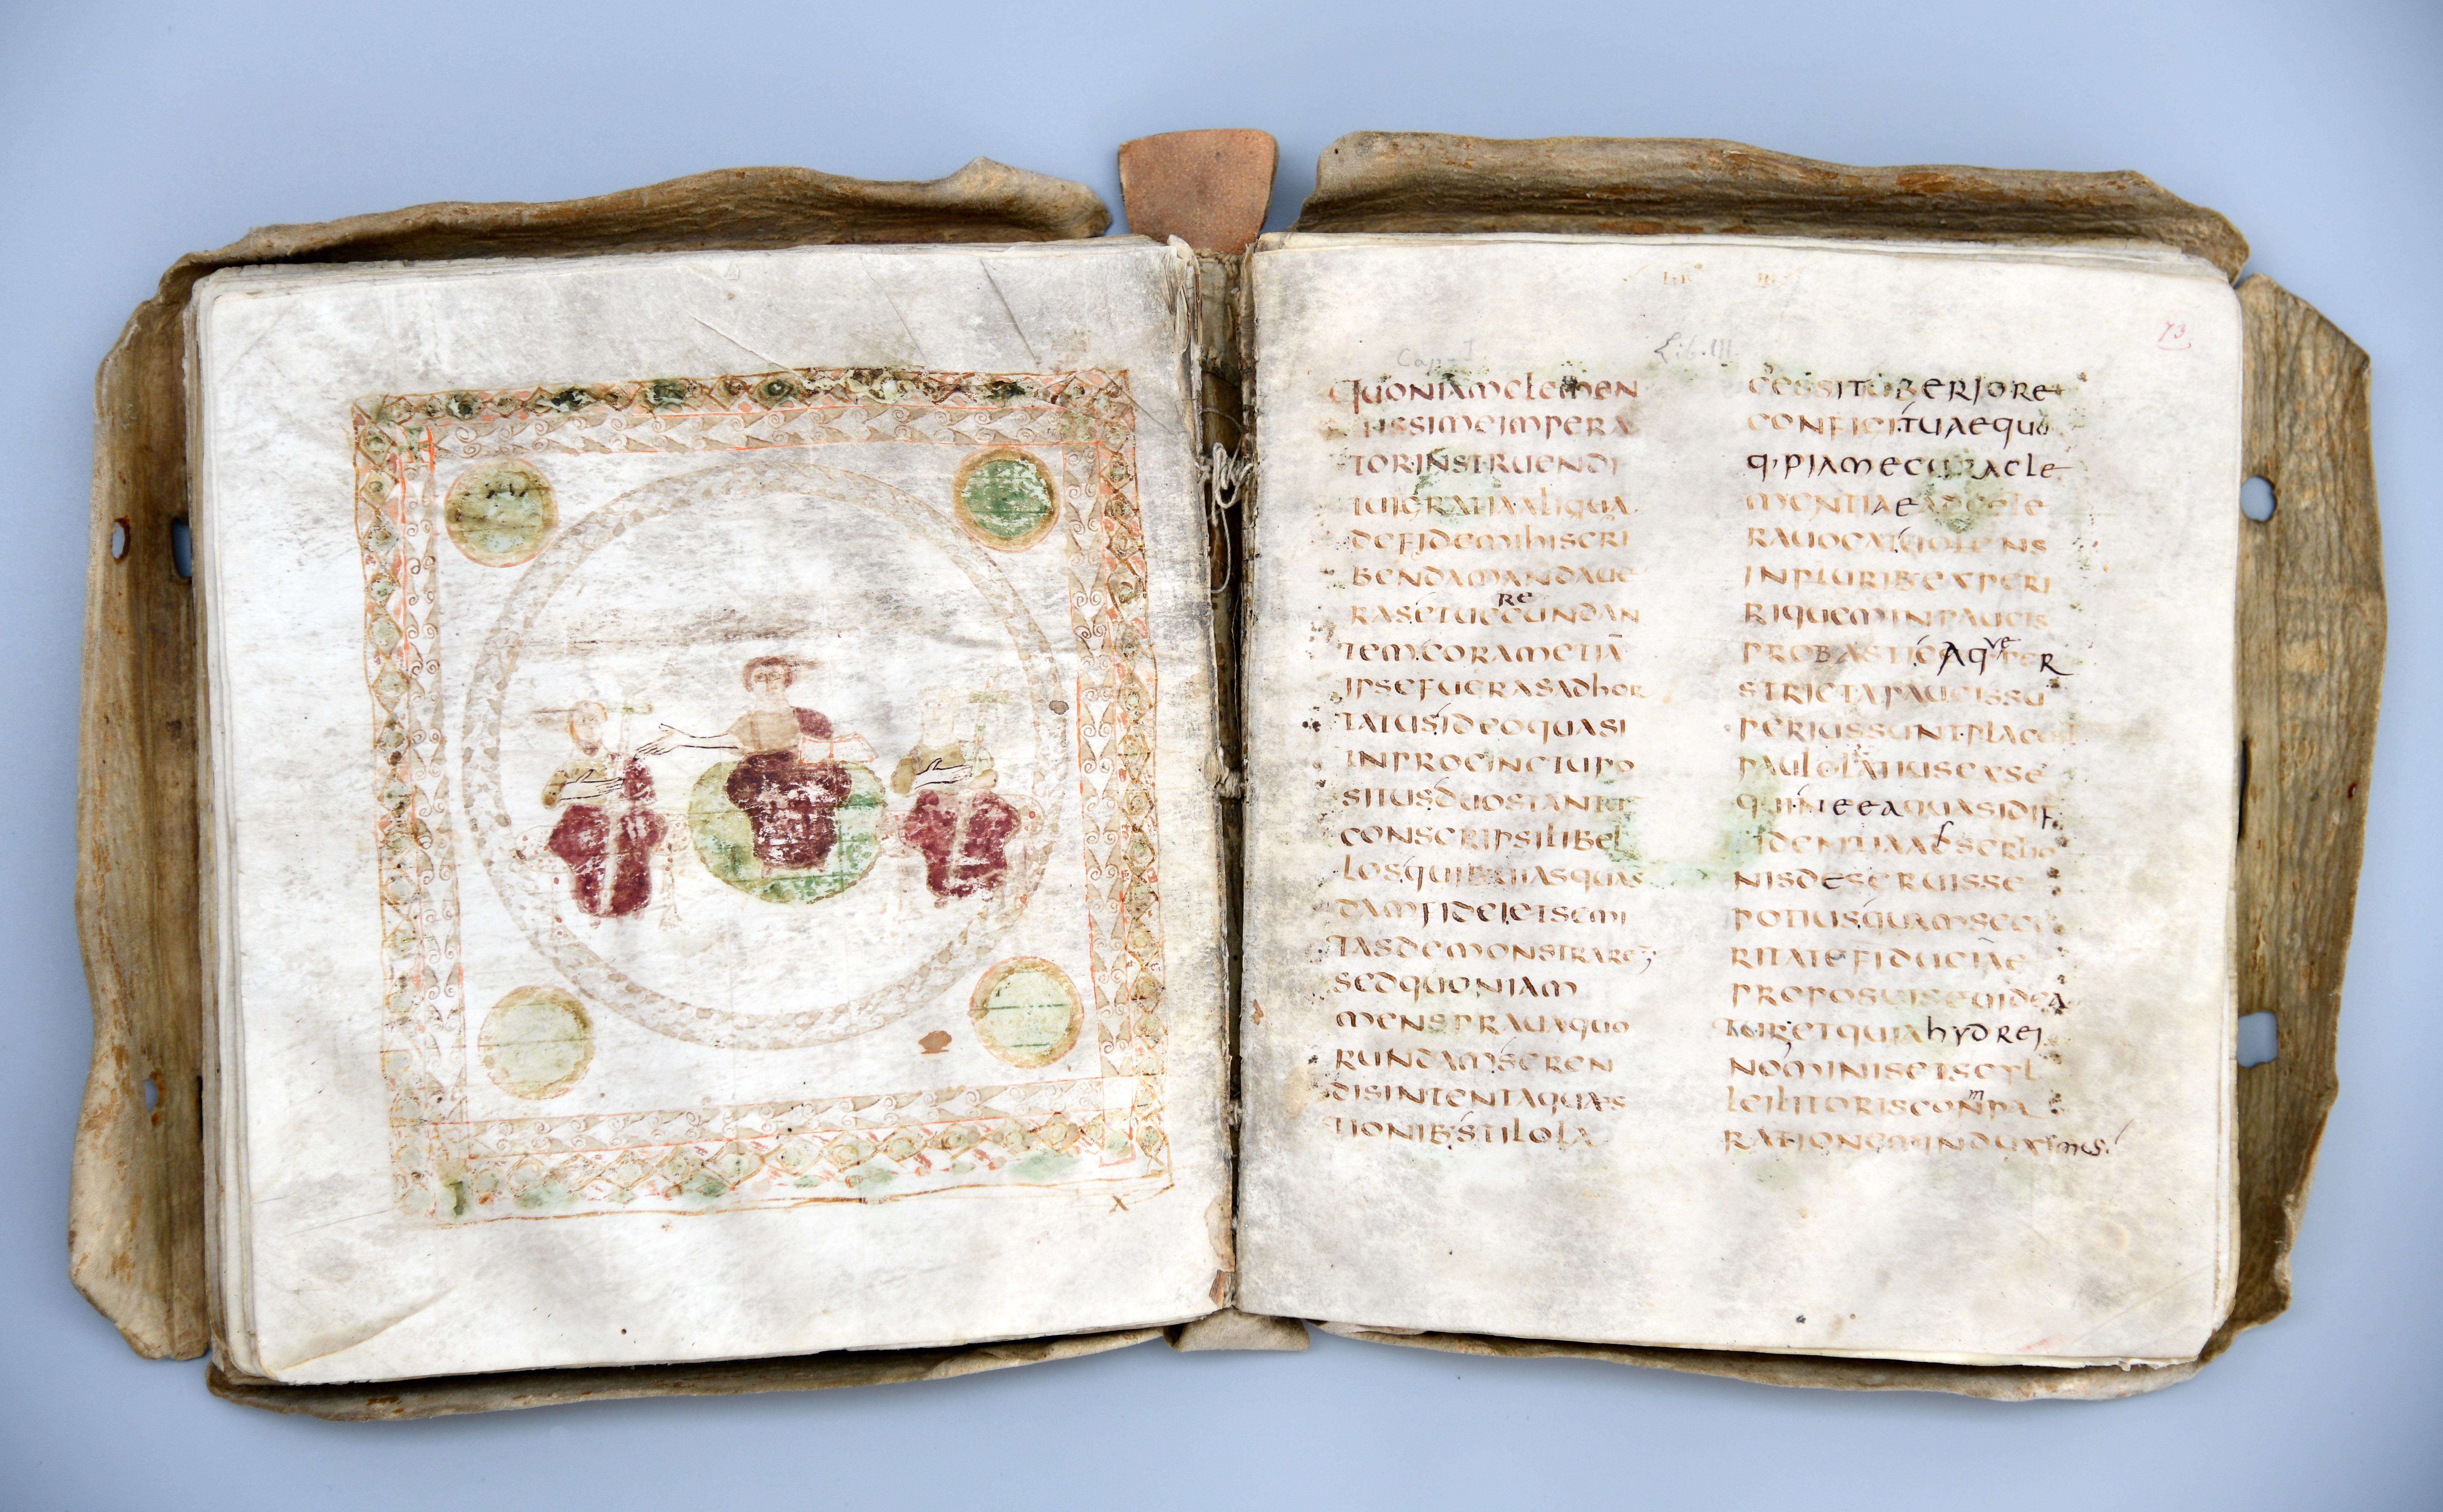 Cap. I
Lib. III.
73
QUONIAMCLEMEN
TISSIMEIMPERA
TORINSTRUENDI
TUIGRATIAALIQUA
DEFIDEMIHISCRI
BENDAMANDAUE
RASETUERECUNDAN
TEMCORAMETIĀ
IPSEFUERASADHOR
TATUSIDEOQUASI
INPROCINCTUPO
SITUSDUOSTANTŪ
CONSCRIPSILIBEL
LOSQUIBUIASQUAS
DAMFIDEIETSEMI
TASDEMONSTRARET
SEDQUONIAM
MENSPRAUAQUO
RUNDAMSEREN
DISINTENTAQUAES
TIONIB·STILOLA
CESSITUBERIORE
CONFICITUAEQUO
Q·PIAMECURACLE
MENTIAEADCETE
RAUOCATUOLENS
INPLURIB·EXPERI
RIQUEMINPAUCIS
PROBASTICAQVEPER
STRICTAPAUCISSU
PERIUSSUNTPLACET
PAULOLATIUSEXSE
QUINEEAQUASIDIF
IDENTIAADSERTIO
NISDESERUISSE
POTIUSQUAMSECU
RITATEFIDUCIAE
PROPOSUISSEUIDEA
TURETQUIAHYDREI
NOMINISETSCYL
LEILITORISCOMPA
RATIONEMINDUXIMUS
x